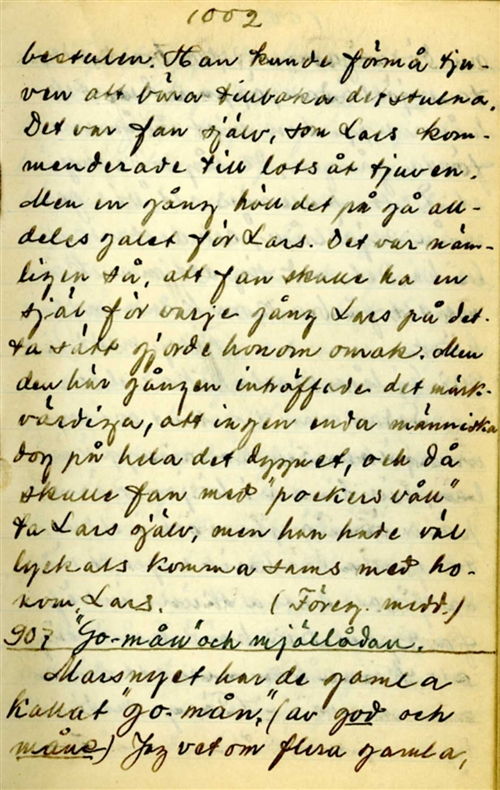 1002
bestulen. Han kunde förmå tju-
ven att bära tillbaka det stulna.
Det var fan själv, som Lars kom-
menderade till lots åt tjuven.
Men en gång höll det på gå all-
deles galet för Lars. Det var näm-
ligen så, att fan skulle ha en
själ för varje gång Lars på det-
ta sätt gjorde honom omak. Men
den här gången inträffade det märk-
värdiga, att ingen enda människa
dog på hela det dygnet, och då
skulle fan med "pockers våll"
ta Lars själv, men han hade väl
lyckats komma sams med ho-
nom, Lars. (Föreg. medd.)
907 "Go-mån" och mjöllådan.
Marsnyet har de gamla
kallat "go-mån", (av god och
måne) Jag vet om flera gamla,